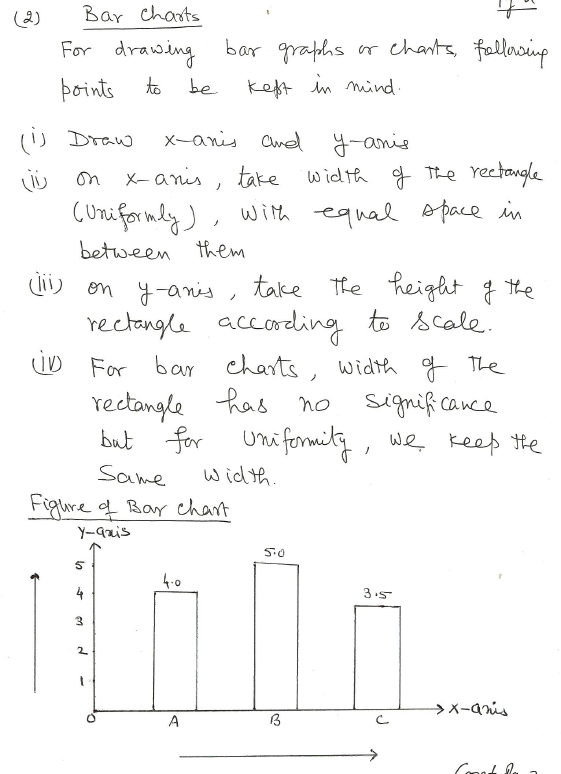 (2) Bar Charts
For drawing bar graphs or charts, following
points to be kept in mind.
(i) Draw x-axis and y-axis
(ii) on x-axis, take width of the rectangle
(Uniformly), with equal space in
between them
(iii) on y-axis, take the height of the
rectangle according to scale.
(iv) For bar charts, width of the
rectangle has no significance
but for Uniformity, we keep the
Same width.
Figure of Bar chart
Y-axis
5.0
5
4.0
4
3.5
3
2
1
0 A B C X-axis